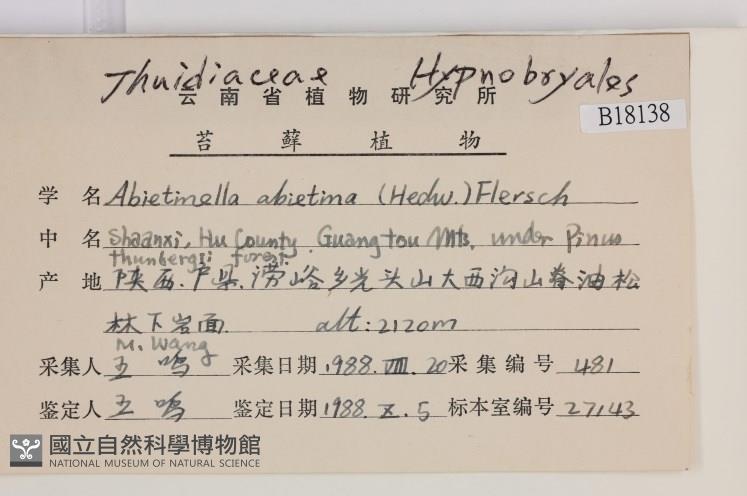 Thuidiaceae Hypnobryales
云南省植物研究所
B18138
苔藓植物
学名 Abietinella abietina (Hedw.) Flersch
中名 Shaanxi, Hu County. Guangtou Mts. under Pinus
thunbergii forest.
产地 陕西.户县.涝峪乡光头山大西沟山脊油松
林下岩面. alt: 2120m
M. Wang
采集人 王鸣 采集日期 1988.VIII.20 采集编号 481
鉴定人 王鸣 鉴定日期 1988.X.5 标本室编号 27143
國立自然科學博物館
NATIONAL MUSEUM OF NATURAL SCIENCE